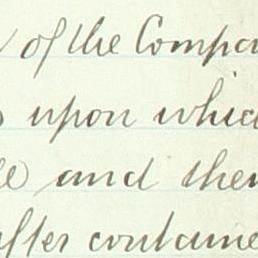 of the Compa
upon whic
and then
after containe